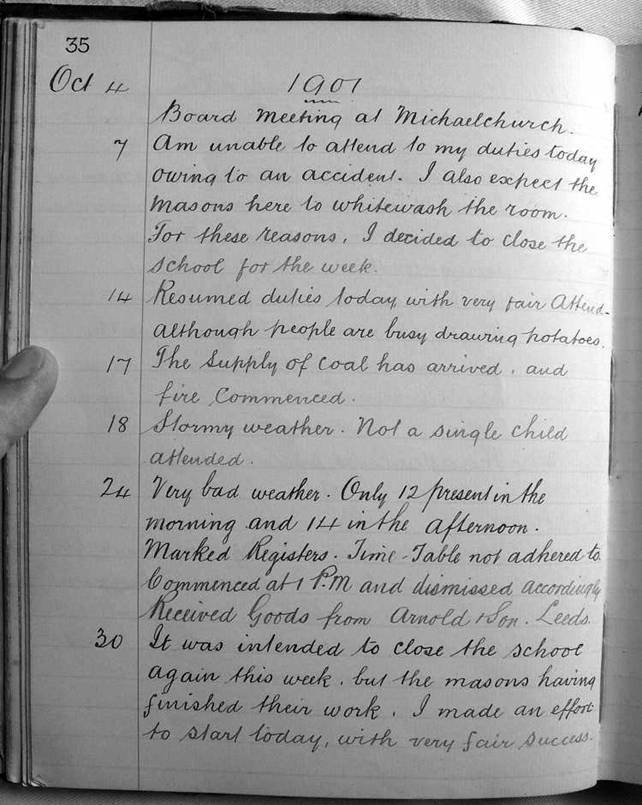 35
Oct 4 1901
Board meeting at Michaelchurch.
7 Am unable to attend to my duties today
owing to an accident. I also expect the
masons here to whitewash the room.
For these reasons, I decided to close the
school for the week.
14 Resumed duties today with very fair Attend-
although people are busy drawing potatoes.
17 The Supply of Coal has arrived, and
fire Commenced.
18 Stormy weather. Not a single Child
attended.
24 Very bad weather. Only 12 present in the
morning and 14 in the afternoon.
Marked Registers. Time-Table not adhered to.
Commenced at 1 P.M and dismissed accordingly
Received Goods from Arnold & Son. Leeds.
30 It was intended to close the school
again this week, but the masons having
finished their work, I made an effort
to start today, with very fair success.